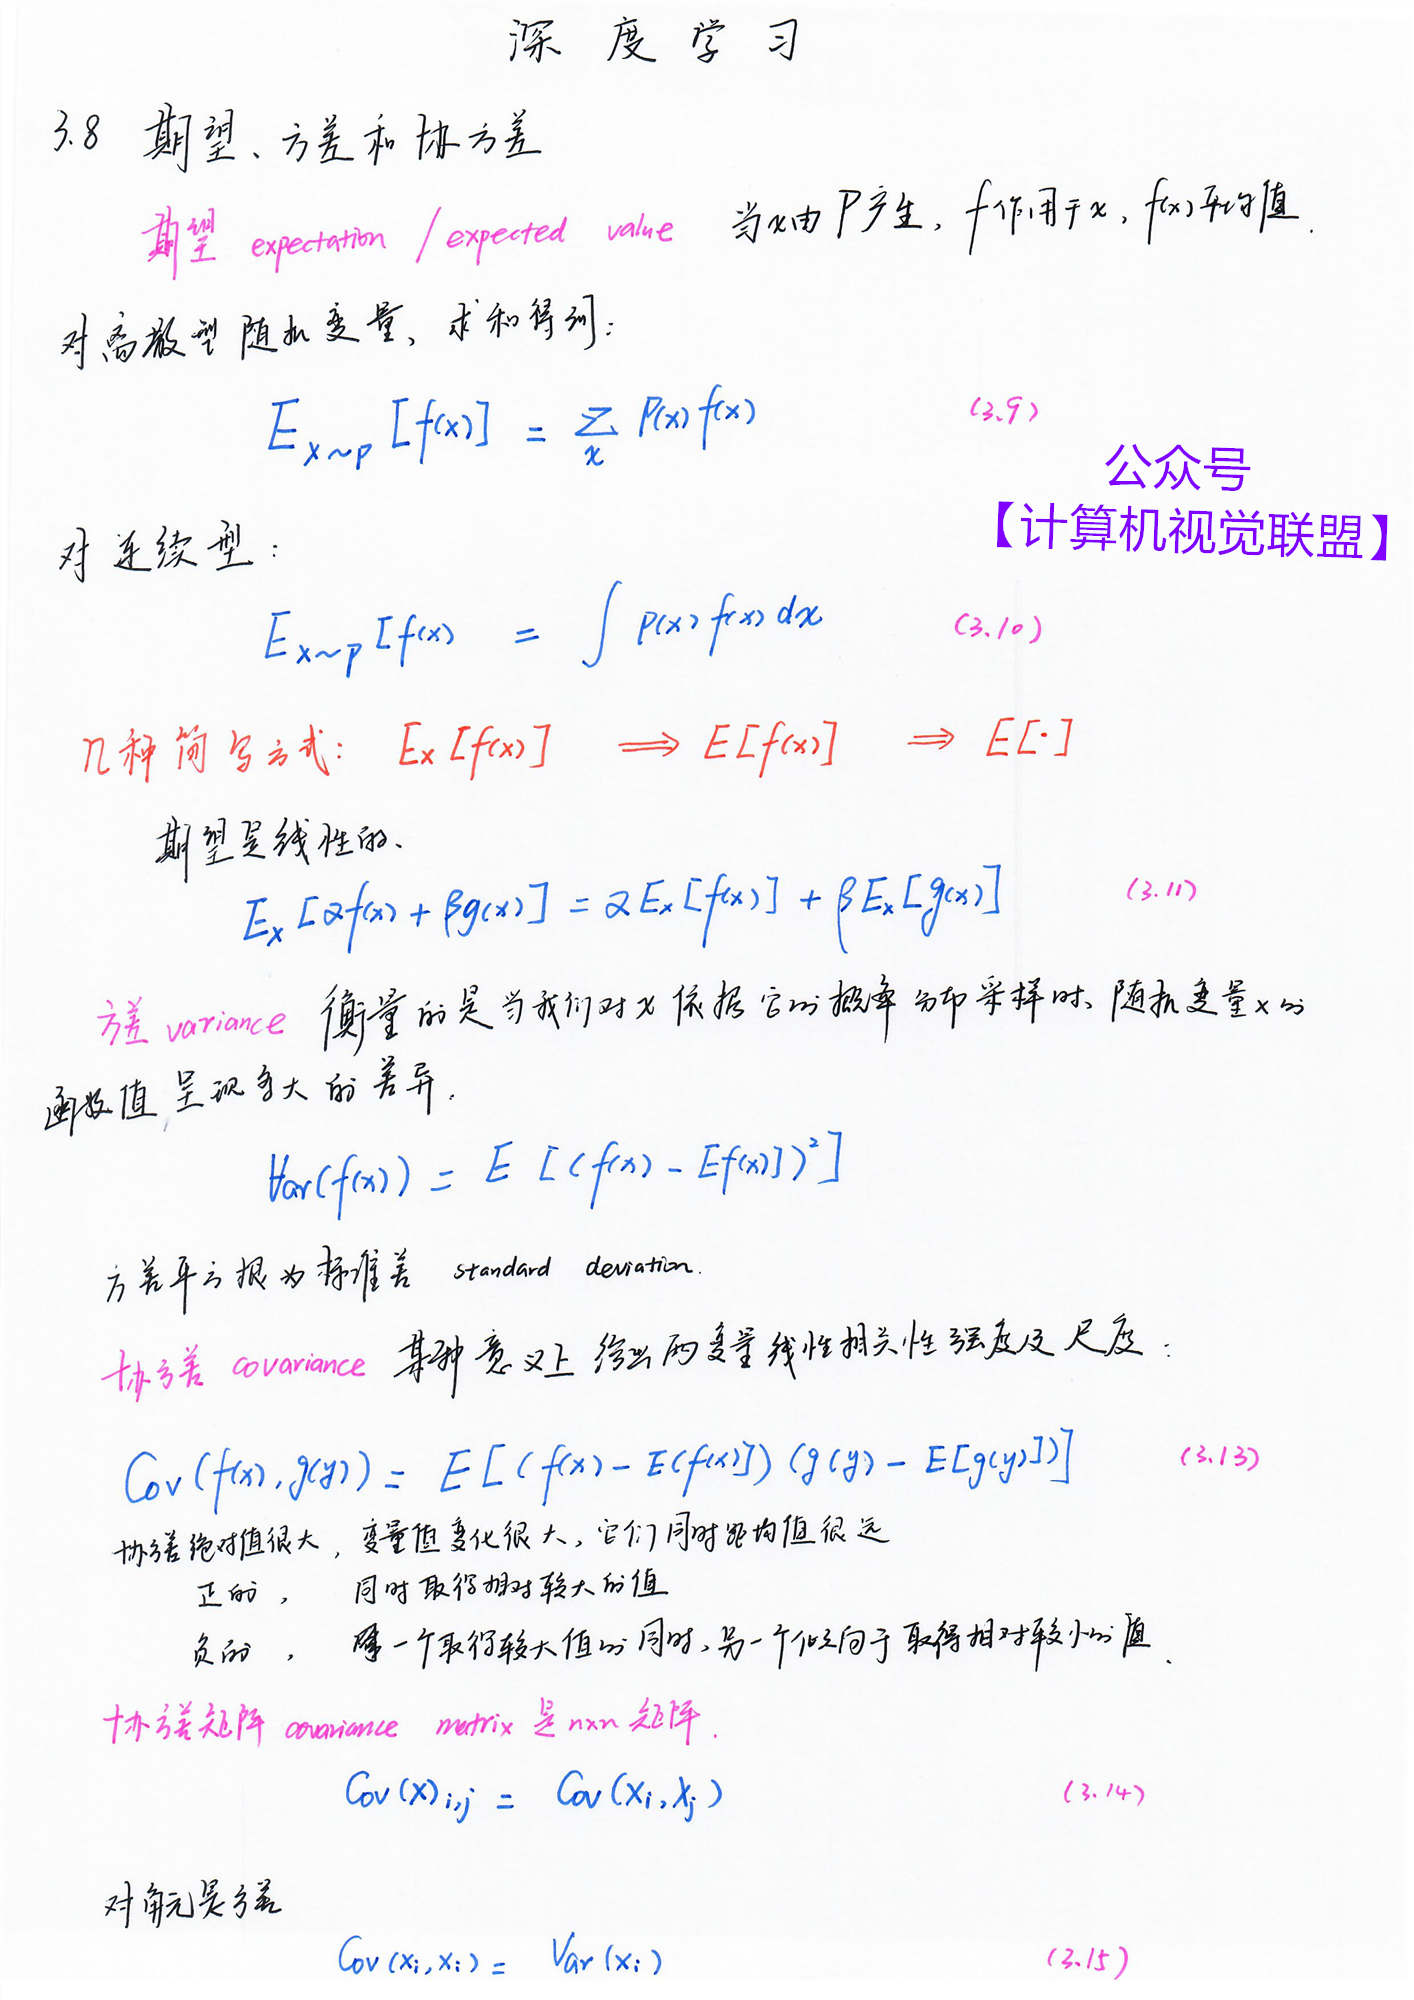 深度学习
3.8 期望、方差和协方差
期望 expectation / expected value 当x由P产生, f作用于x, f(x)平均值.
对离散型随机变量, 求和得到:
E x~p [f(x)] = Σ x P(x) f(x) (3.9)
公众号
【计算机视觉联盟】
对连续型:
E x~p [f(x) = ∫ p(x) f(x) dx (3.10)
几种简写方式: Ex [f(x)] ⟹ E[f(x)] ⟹ E[·]
期望是线性的、
Ex [αf(x) + βg(x)] = αEx [f(x)] + βEx [g(x)] (3.11)
方差 variance 衡量的是当我们对x依据它的概率分布采样时、随机变量x的
函数值呈现多大的差异.
Var(f(x)) = E [(f(x) - Ef(x)])²]
方差平方根为标准差 standard deviation.
协方差 covariance 某种意义上给出两变量线性相关性强度及尺度:
Cov(f(x), g(y)) = E[(f(x) - E(f(x)]) (g(y) - E[g(y)])] (3.13)
协方差绝对值很大, 变量值变化很大, 它们同时距均值很远
正的, 同时取得相对较大的值
负的, 一个取得较大值的同时, 另一个倾向于取得相对较小的值.
协方差矩阵 covariance matrix 是n×n矩阵.
Cov(X)i,j = Cov(Xi, Xj) (3.14)
对角元是方差
Cov(xi, xi) = Var(xi) (3.15)